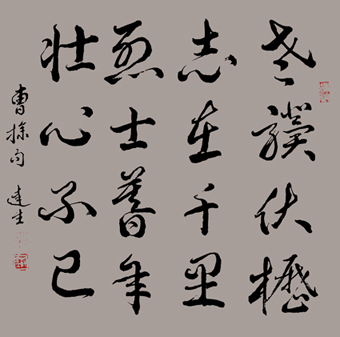 老骥伏櫪
志在千里
烈士暮年
壮心不已
曹操句 達生